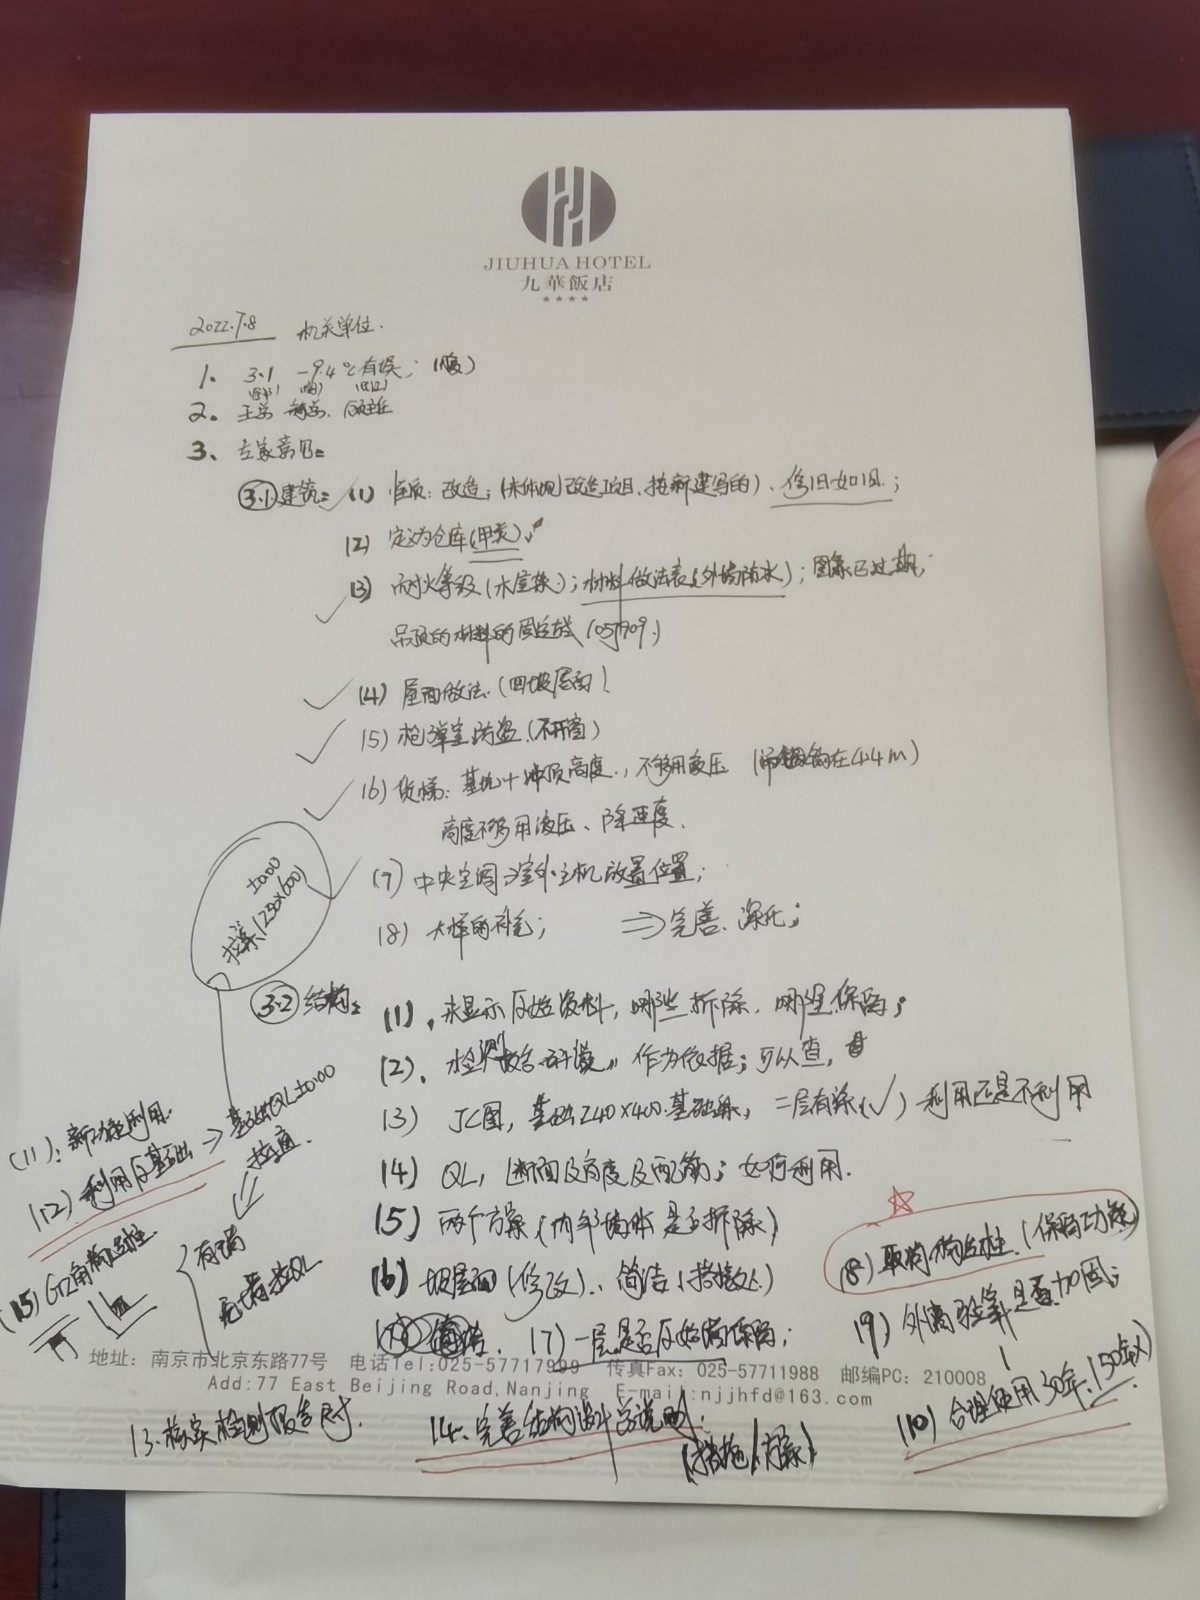 JIUHUA HOTEL
九華飯店
★★★★
2022.7.8 机关单位.
1. 3.1 -9.4℃有误;
2. 王总
3. 专家意见:
3.1 建筑: (1) 性质: 改造; (未体现改造项目、按新建写的)、修旧如旧;
(2) 定义为仓库(甲类)、
(3) 耐火等级(木屋架); 材料做法表(外墙防水); 图集已过期;
吊顶的材料的固定线
(4) 屋面做法.(四坡屋面)
(5) 枪弹室防盗.(不开窗)
(6) 货梯: 基坑+冲顶高度., 不够用液压 (吊钩在4.4m)
高度不够用液压、降速度.
(7) 中央空调 室外主机放置位置;
(8) 大样的补充; ⇒完善、深化;
±0.00
拉梁(250×600)
3.2 结构: (1), 未显示原始资料, 哪些拆除, 哪些保留;
(2), 检测报告 作为依据; 可以查,
(3) JC图, 基础240×400.基础梁, 二层有梁(✓) 利用还是不利用
(4) QL, 断面及高度及配筋; 如何利用.
(5) 两个方案(内部墙体是否拆除)
(6) 坡屋面(修改)、
(7) 一层是否原始墙保留;
(8) 取消构造柱.(保留功能)
(9) 外离 验算是否加固;
(10) 合理使用30年.(50年×)
(11): 新功能利用.
(12) 利用原基础 ⇒ 基础QL±0.00
拉通.
有墙
无墙拉QL
(15) GZ角构造柱
13. 核实检测报告尺寸.
14. 完善结构设计总说明.
(措施/方案)
地址: 南京市北京东路77号 电话Tel:025-57717999 传真Fax: 025-57711988 邮编PC: 210008
Add:77 East Beijing Road,Nanjing E-mail:njjhfd@163.com